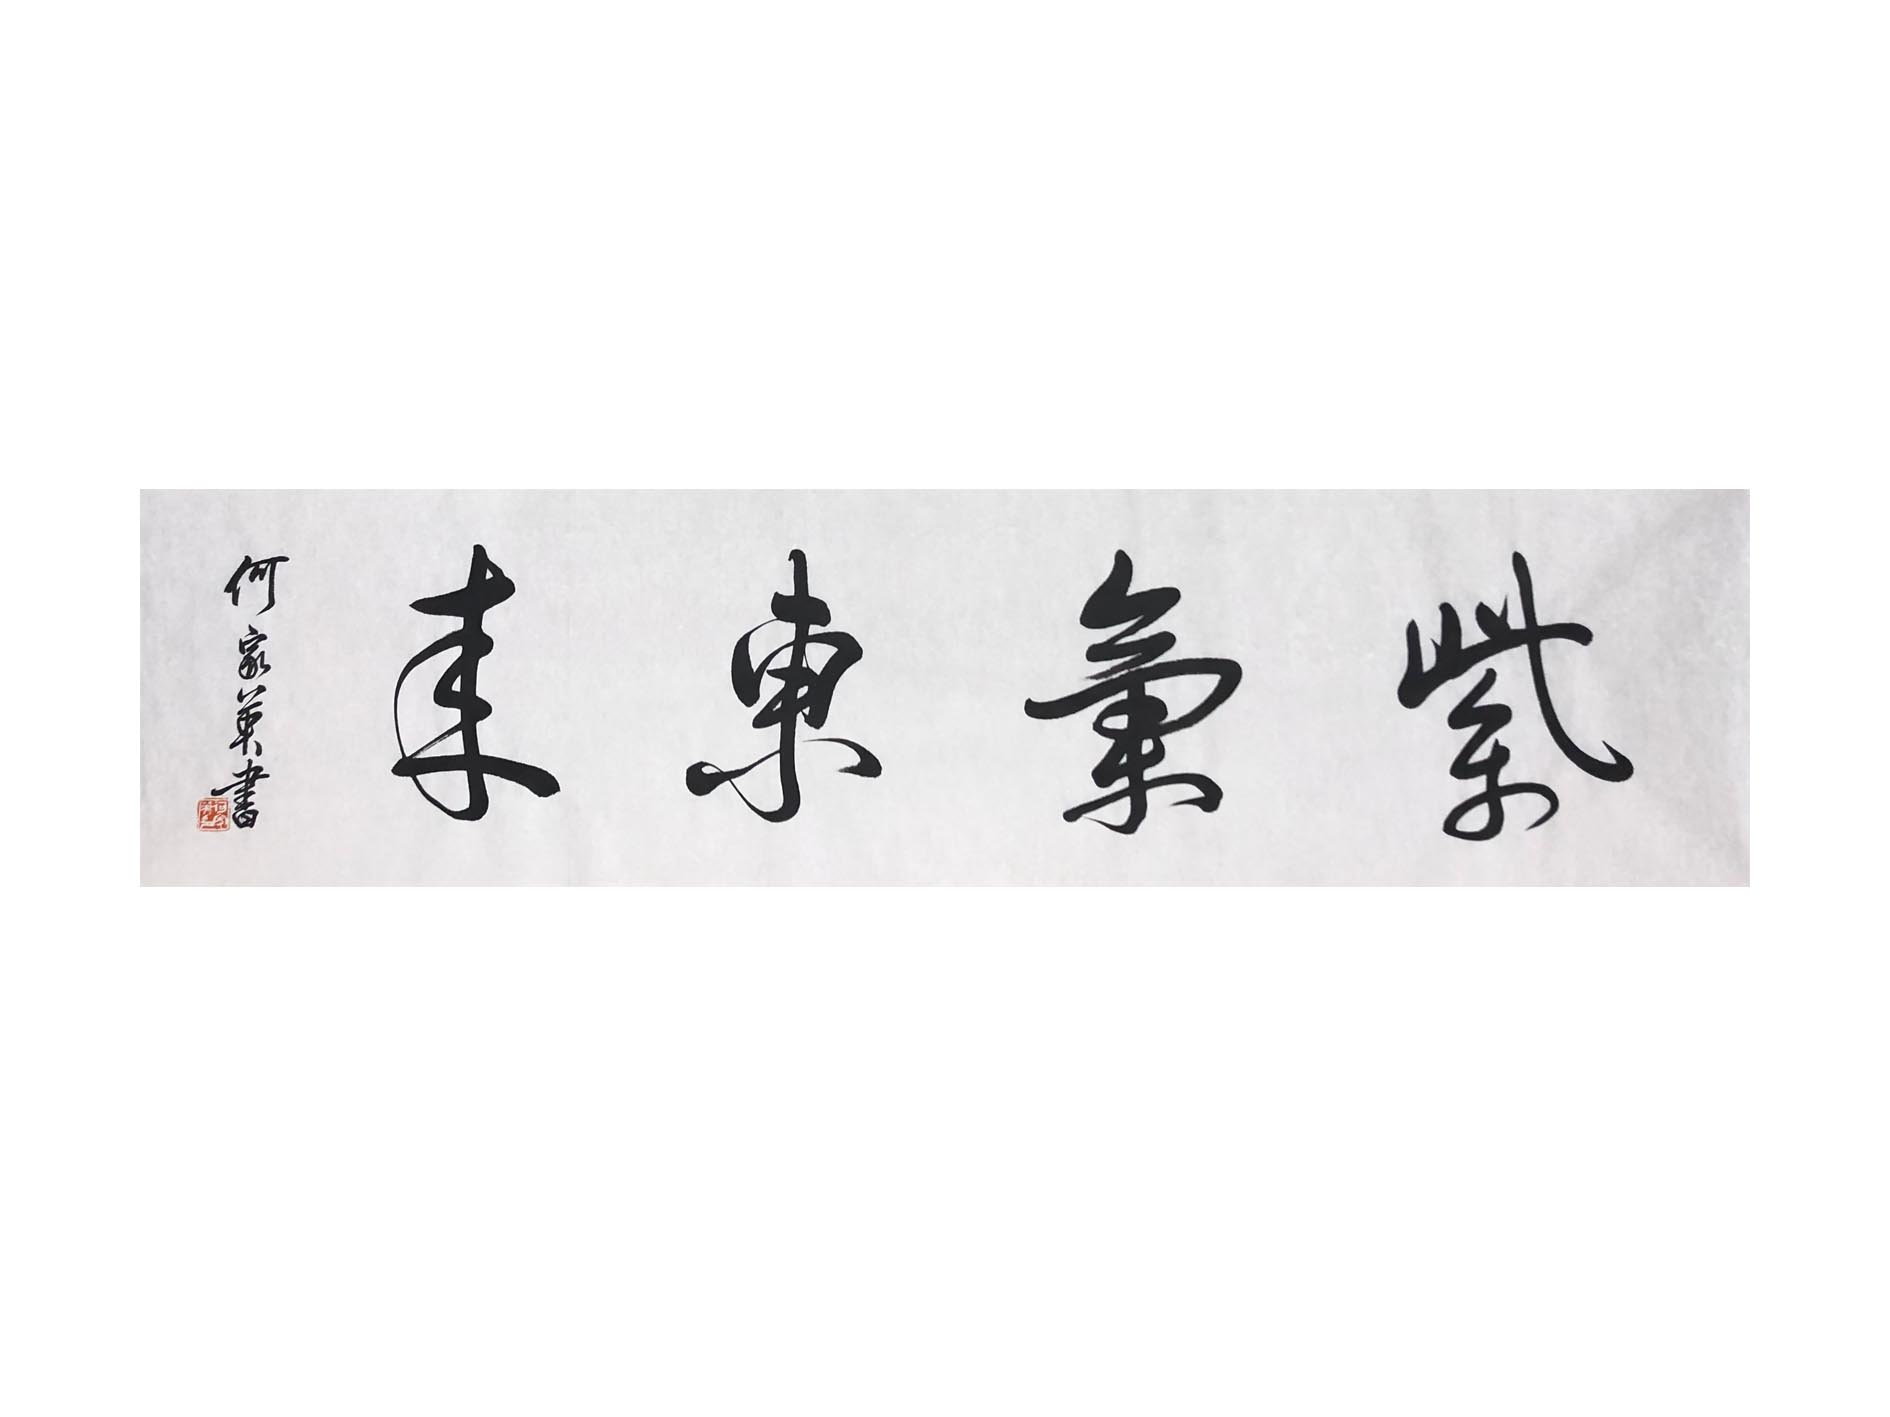 紫氣東来
何家英書